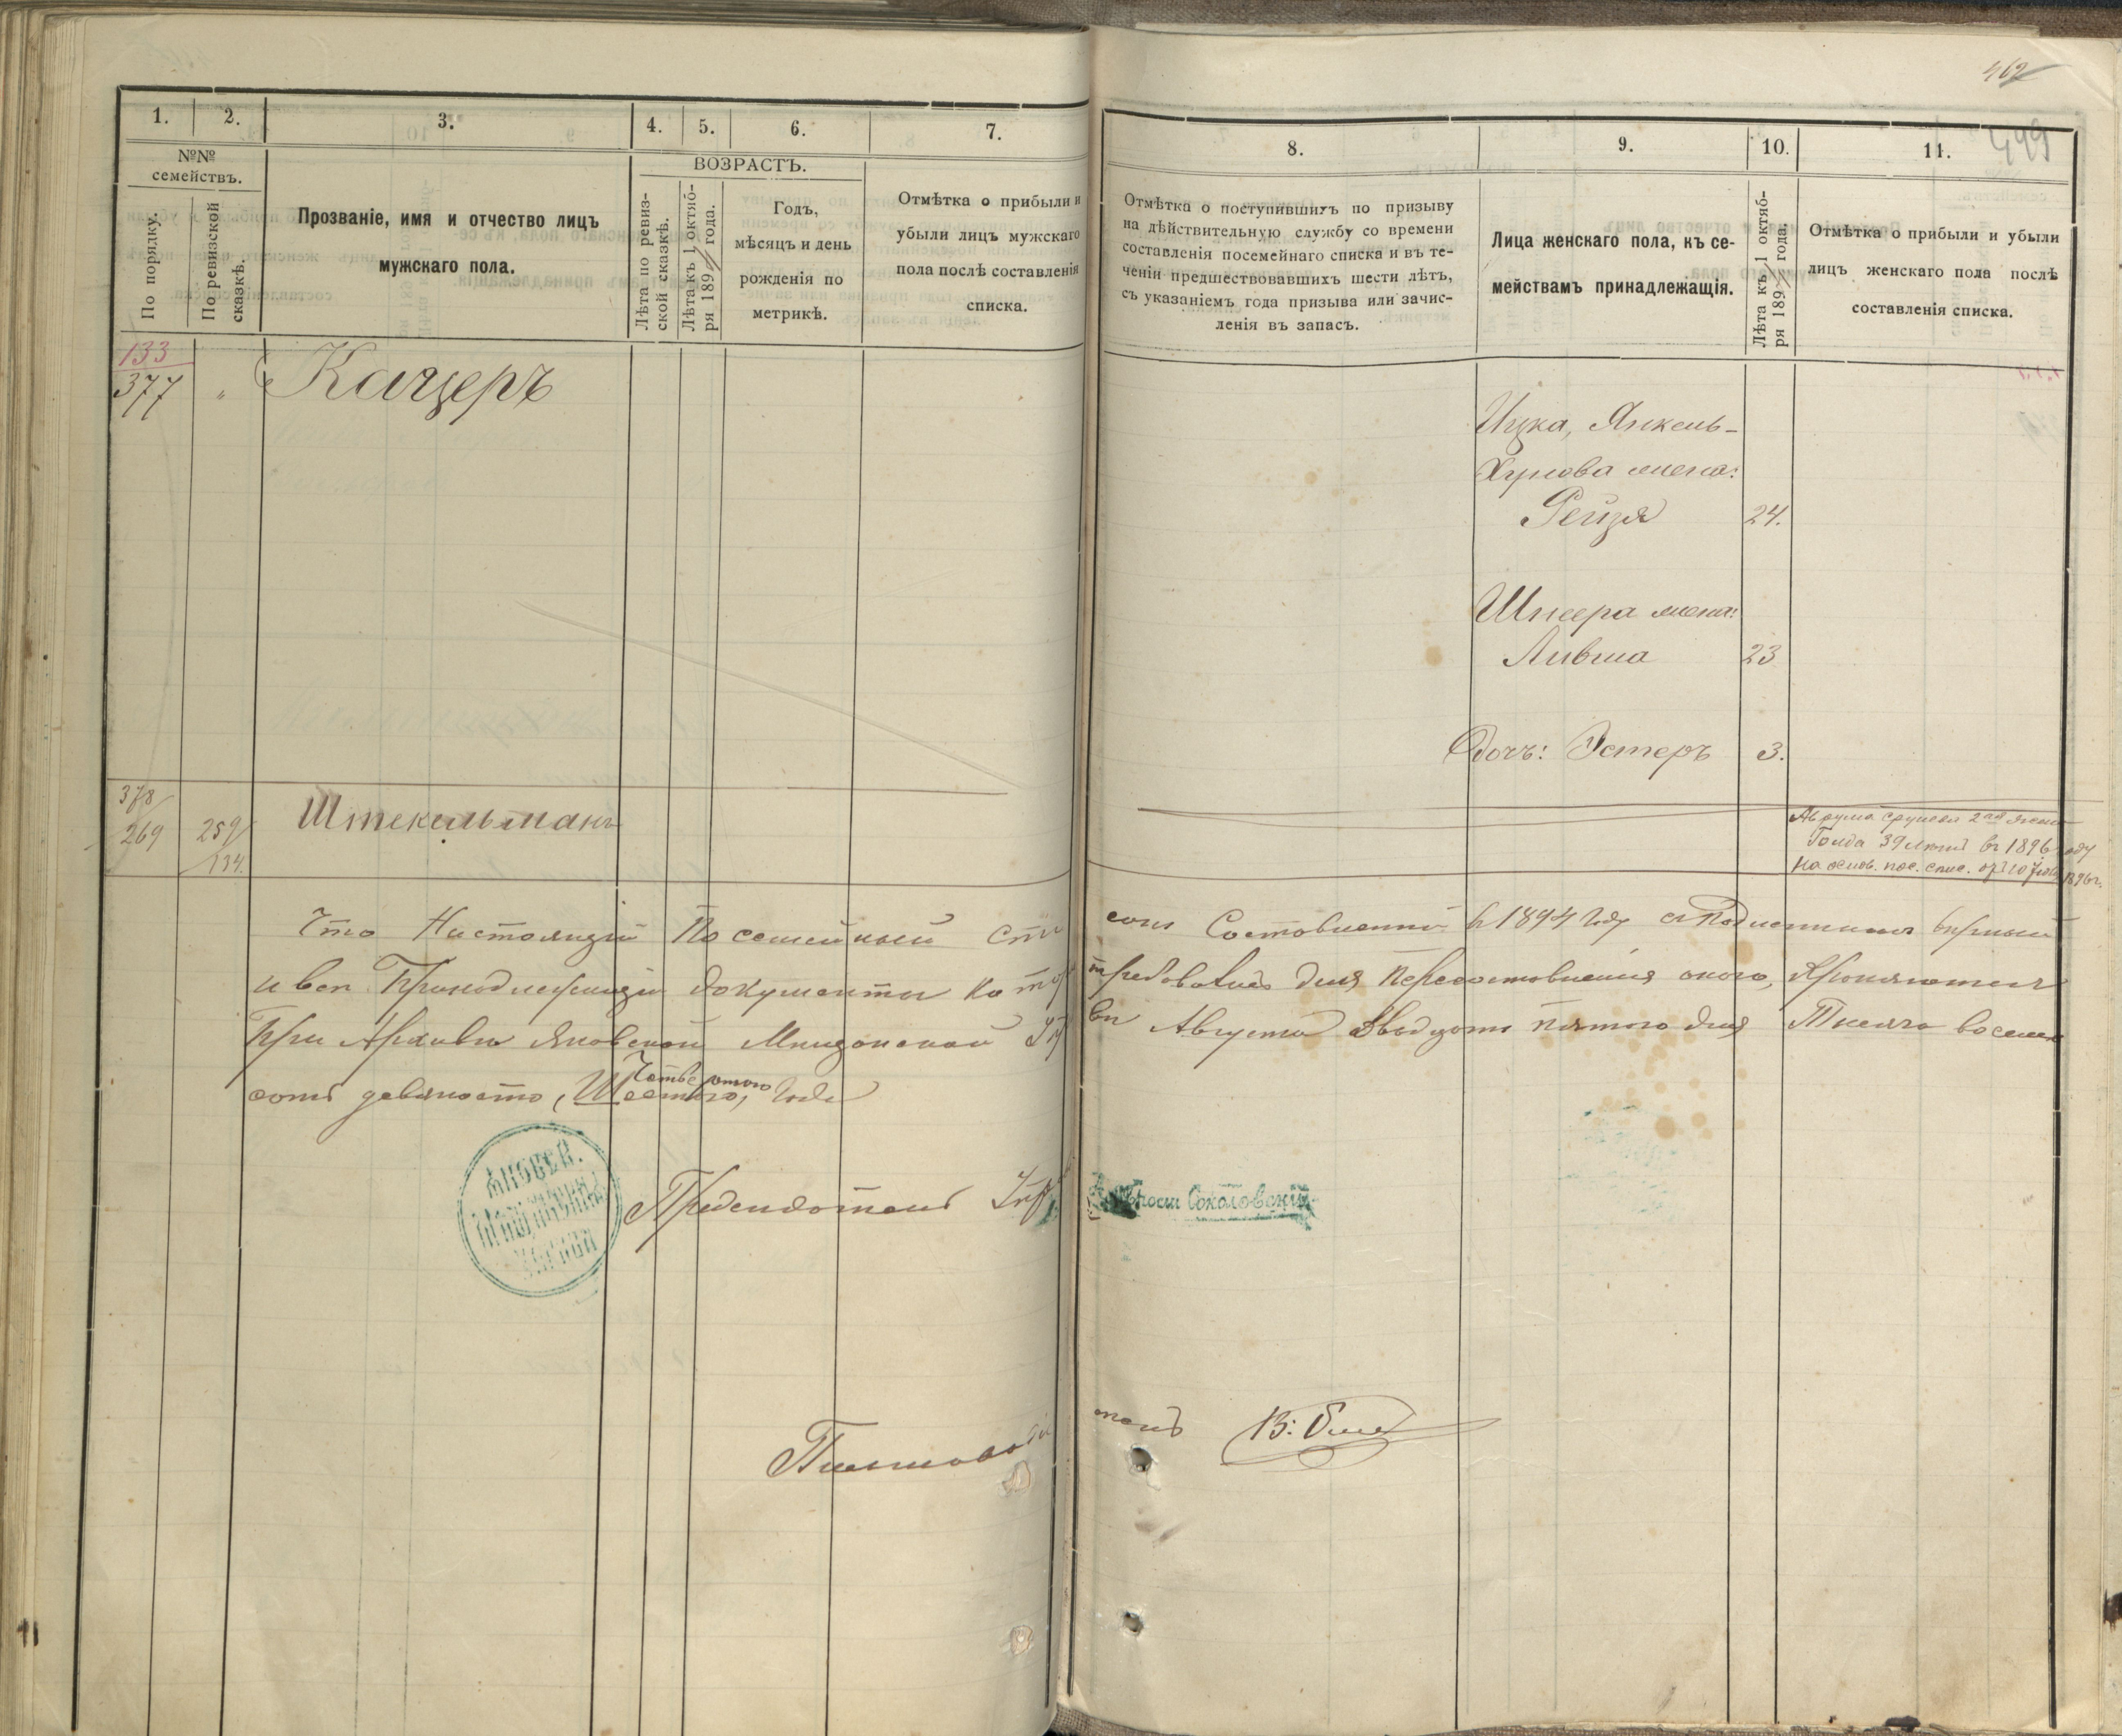 462
499
1. 2. 3. 4. 5. 6. 7.
№№
семействъ.
По порядку.
По ревизской
сказкѣ.
Прозваніе, имя и отчество лицъ
мужскаго пола.
ВОЗРАСТЪ.
Лѣта по ревиз-
ской сказкѣ.
Лѣта къ 1 октяб-
ря 189 года.
Годъ,
мѣсяцъ и день
рожденія по
метрикѣ.
Отмѣтка о прибыли и
убыли лицъ мужскаго
пола послѣ составленія
списка.
8. 9. 10. 11.
Отмѣтка о поступившихъ по призыву
на дѣйствительную службу со времени
составленія посемейнаго списка и въ те-
ченіи предшествовавшихъ шести лѣтъ,
съ указаніемъ года призыва или зачис-
ленія въ запасъ.
Лица женскаго пола, къ се-
мействамъ принадлежащія.
Лѣта къ 1 октяб-
ря 189 года.
Отмѣтка о прибыли и убыли
лицъ женскаго пола послѣ
составленія списка.
133
377 " Кацеръ
Ицка, Янкель-
жена:
Рейзя 24.
Шнеера жена:
Лившa 23
Дочь: Эстеръ 3.
378
269 259 Штекельманъ
134.
2ая жена
Голда 39 лѣтъ въ 1896 году
на основ. пос. спис. 1896 г.
Что Настоящій Посемейный спи сокъ Составленный въ 1894 Году
и все Принадлежащіе документы для Пересоставленія онаго, Хранятся
При Архивѣ Яновской Мѣщанской Августа двадцать пятого дня Тысяча восемь
Четвертого
сотъ девяносто, Шестого, Года
ЯНОВСК.
МѢЩАНСКАЯ
УПРАВА
Предсидатель Соколовскій
Письмоводи тель